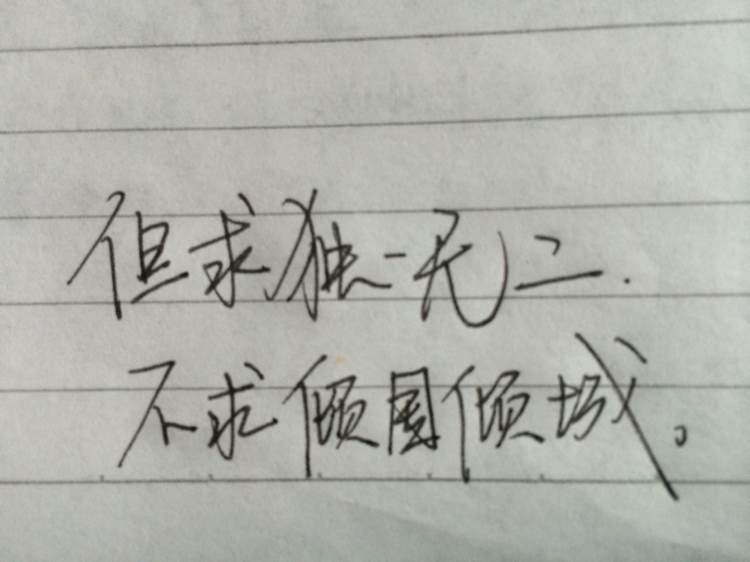 但求独一无二.
不求倾国倾城。